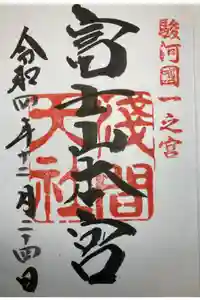 駿河國一之宮
富士山本宮
淺間
大社
令和四年十二月二十四日